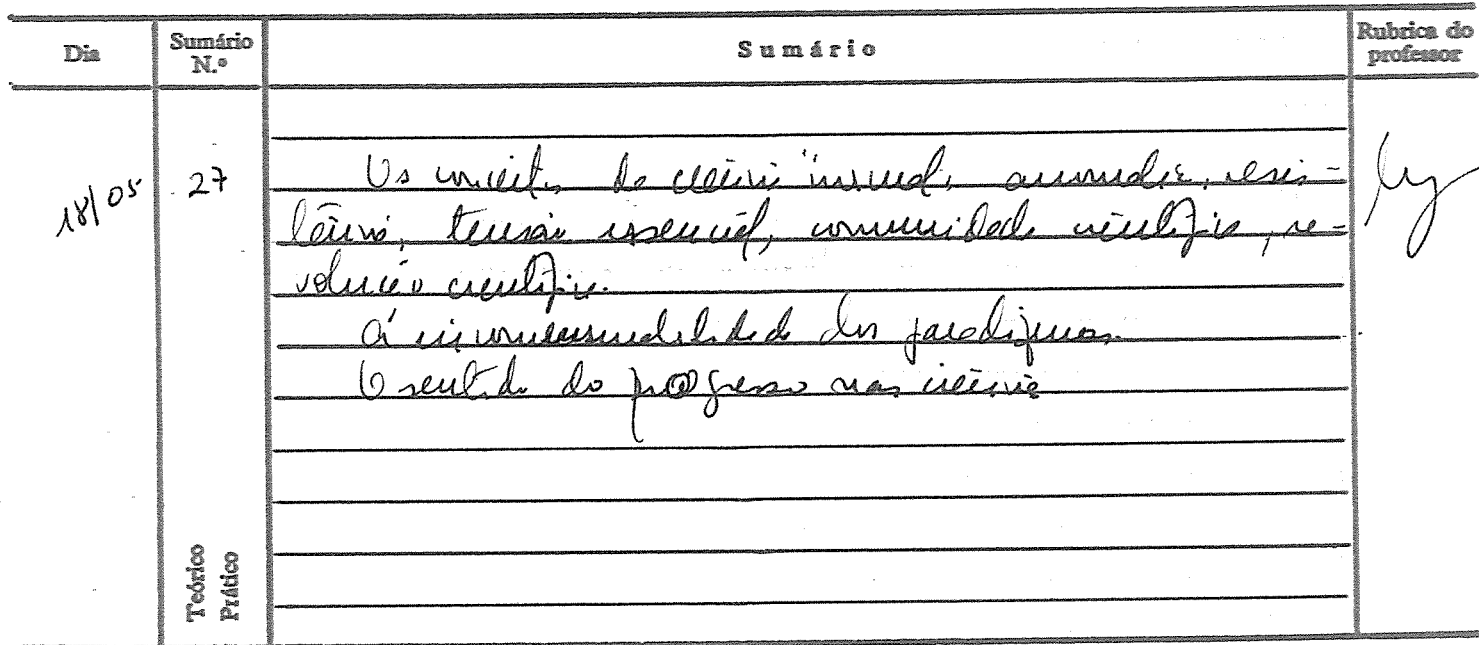 Dia
Sumário N.º
Sumário
Rubrica do professor
18/05
27
Os conceitos de ciência normal, anomalia, resis-
tência, tensão essencial, comunidade científica, re-
volução científica.
A incomensurabilidade dos paradigmas.
O sentido do progresso nas ciências
Teórico
Prático